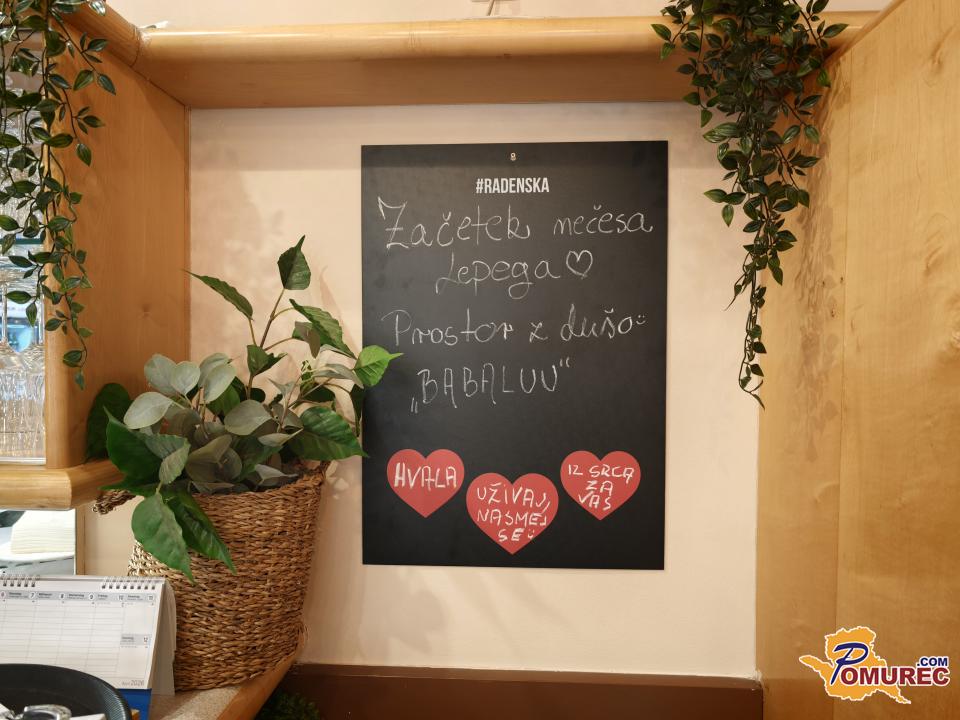 #RADENSKA
Začetek nečesa
lepega
Prostor z dušo
„BABALUU“
HVALA
UŽIVAJ,
NASMEJ
SE
IZ SRCA
ZA
VAS
April 2026
POMUREC.COM